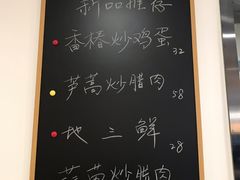 新品推荐
香椿炒鸡蛋 32
芦蒿炒腊肉 58
地三鲜 28
炒腊肉